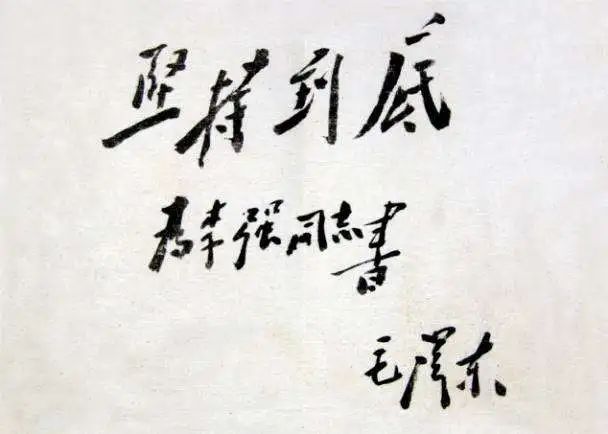 坚持到底
为李强同志書
毛泽东